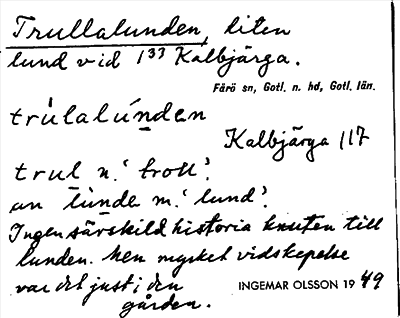 Trullalunden, liten
lund vid 133 Kalbjärga.
Fårö sn, Gotl. n. hd, Gotl. län.
trùlalúnden
Kalbjärga 117
trul n. ‘troll’.
an lùnde m. ‘lund’.
Ingen särskild historia knuten till
lunden. Men mycket vidskepelse
var det just i den
gården.
INGEMAR OLSSON 1949